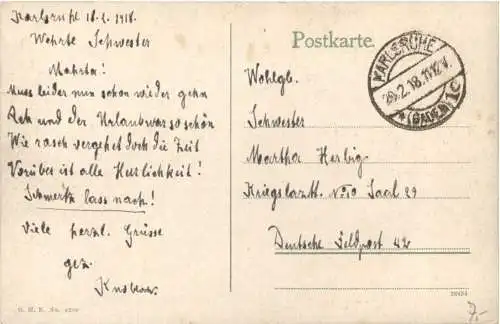 Karlsruhe 28.2.1918.
Werte Schwester
Martha!
Muss leider nun schon wieder gehn
Ach und der Urlaub war so schön
Wie rasch vergehet doch die Zeit
Vorüber ist alle Herlichkeit!
Schmertz lass nach!
Viele herzl. Grüsse
gez.
Postkarte.
KARLSRUHE
28.2.18.11-12V.
* (BADEN) 1c
Wohlgb.
Schwester
Martha Herbig
Kriegslaztt. No 19 Saal 29
Deutsche Feldpost 42
7,-